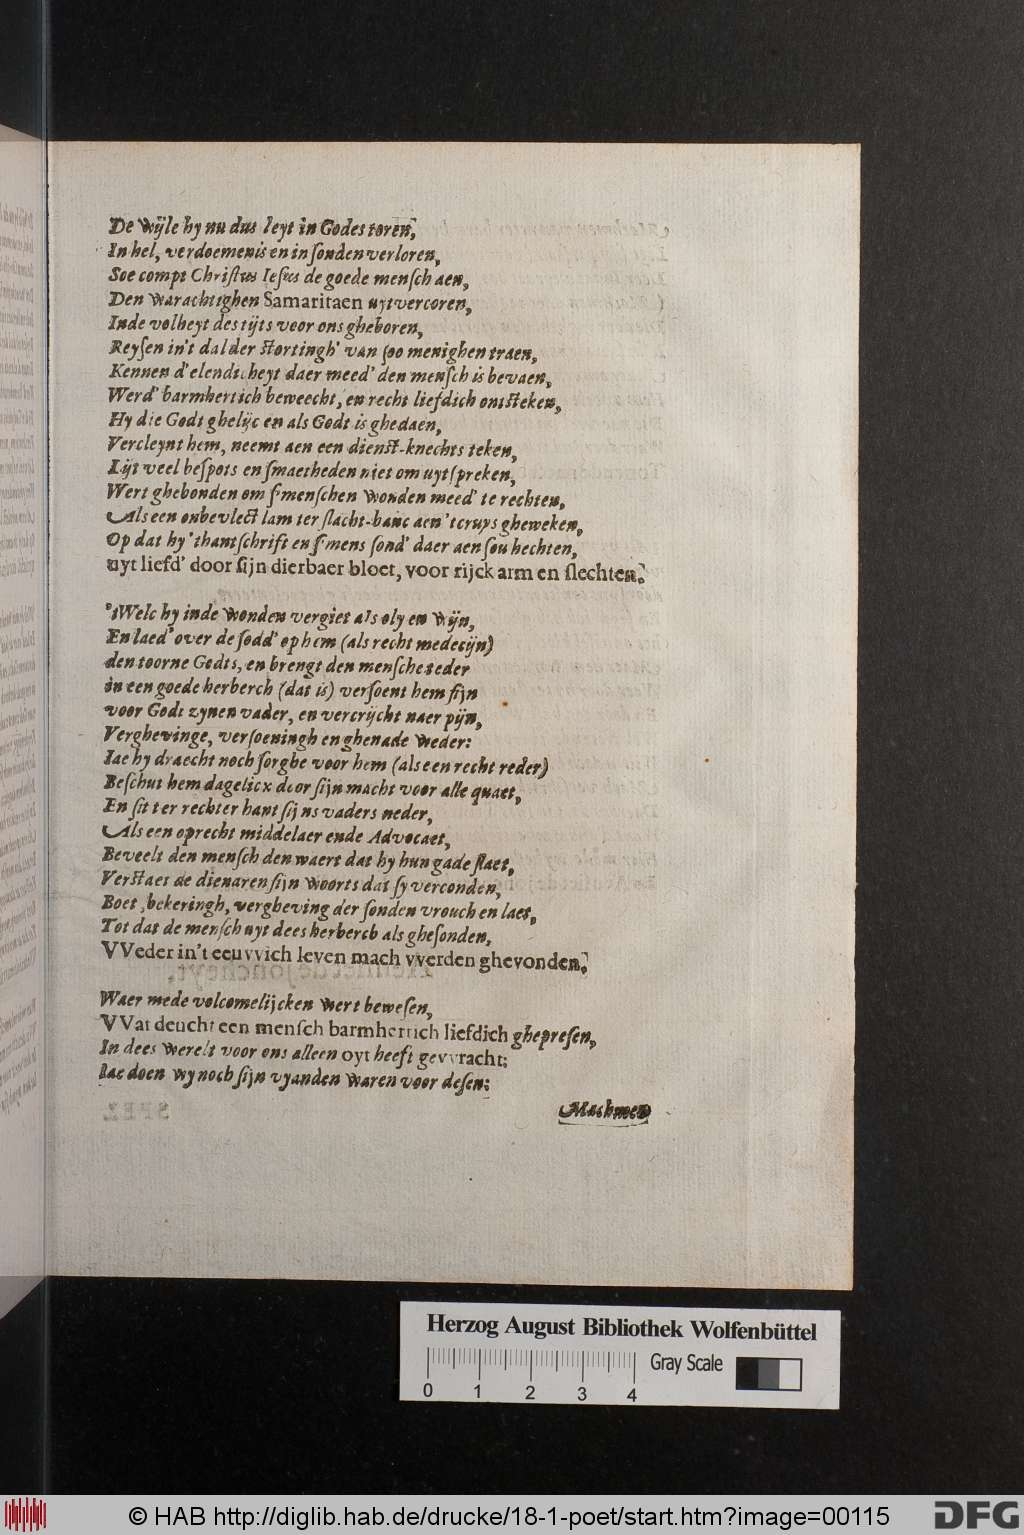 De wijle hy nu dus leyt in Godes toren,
In hel, verdoemenis en in sonden verloren,
Soe compt Christus Iesus de goede mensch aen,
Den warachtighen Samaritaen uytvercoren,
Inde volheyt des tijts voor ons gheboren,
Reysen in't dal der stortingh' van soo menighen traen,
Kennen d'elendicheyt daer meed' den mensch is bevaen,
Werd' barmhertich beweecht, en recht liefdich ontsteken,
Hy die Godt ghelijc en als Godt is ghedaen,
Vercleynt hem, neemt aen een dienst-knechts teken,
Lijt veel bespots en smaetheden niet om uytspreken,
Wert ghebonden om s'menschen wonden meed' te rechten,
Als een onbevlect lam ter slacht-banc aen 't cruys gheweken,
Op dat hy 't hantschrift en s'mens sond' daer aen sou hechten,
uyt liefd' door sijn dierbaer bloet, voor rijck arm en slechten.
'tWelc hy inde wonden vergiet als oly en wijn,
En laed' over de sodd' op hem (als recht medecijn)
den toorne Godts, en brengt den mensche teder
in een goede herberch (dat is) versoent hem sijn
voor Godt zynen vader, en vercrijcht naer pijn,
Verghevinge, versoeningh en ghenade weder:
Iae hy draecht noch sorghe voor hem (als een recht reder)
Beschut hem dagelicx door sijn macht voor alle quaet,
En sit ter rechter hant sijns vaders neder,
Als een oprecht middelaer ende Advocaet,
Beveelt den mensch den waert dat hy hun gade slaet,
Verstaet de dienaren sijn woorts dat sy verconden,
Boet, bekeringh, vergheving der sonden vrouch en laet,
Tot dat de mensch uyt dees herberch als ghesonden,
VVeder in't eeuvvich leven mach vverden ghevonden.
Waer mede volcomelijcken wert bewesen,
VVat deucht een mensch barmhertich liefdich ghepresen,
In dees werelt voor ons alleen oyt heeft gevvracht:
Iae doen wy noch sijn vyanden waren voor desen:
Machmen
Herzog August Bibliothek Wolfenbüttel
Gray Scale
0 1 2 3 4
© HAB http://diglib.hab.de/drucke/18-1-poet/start.htm?image=00115
DFG